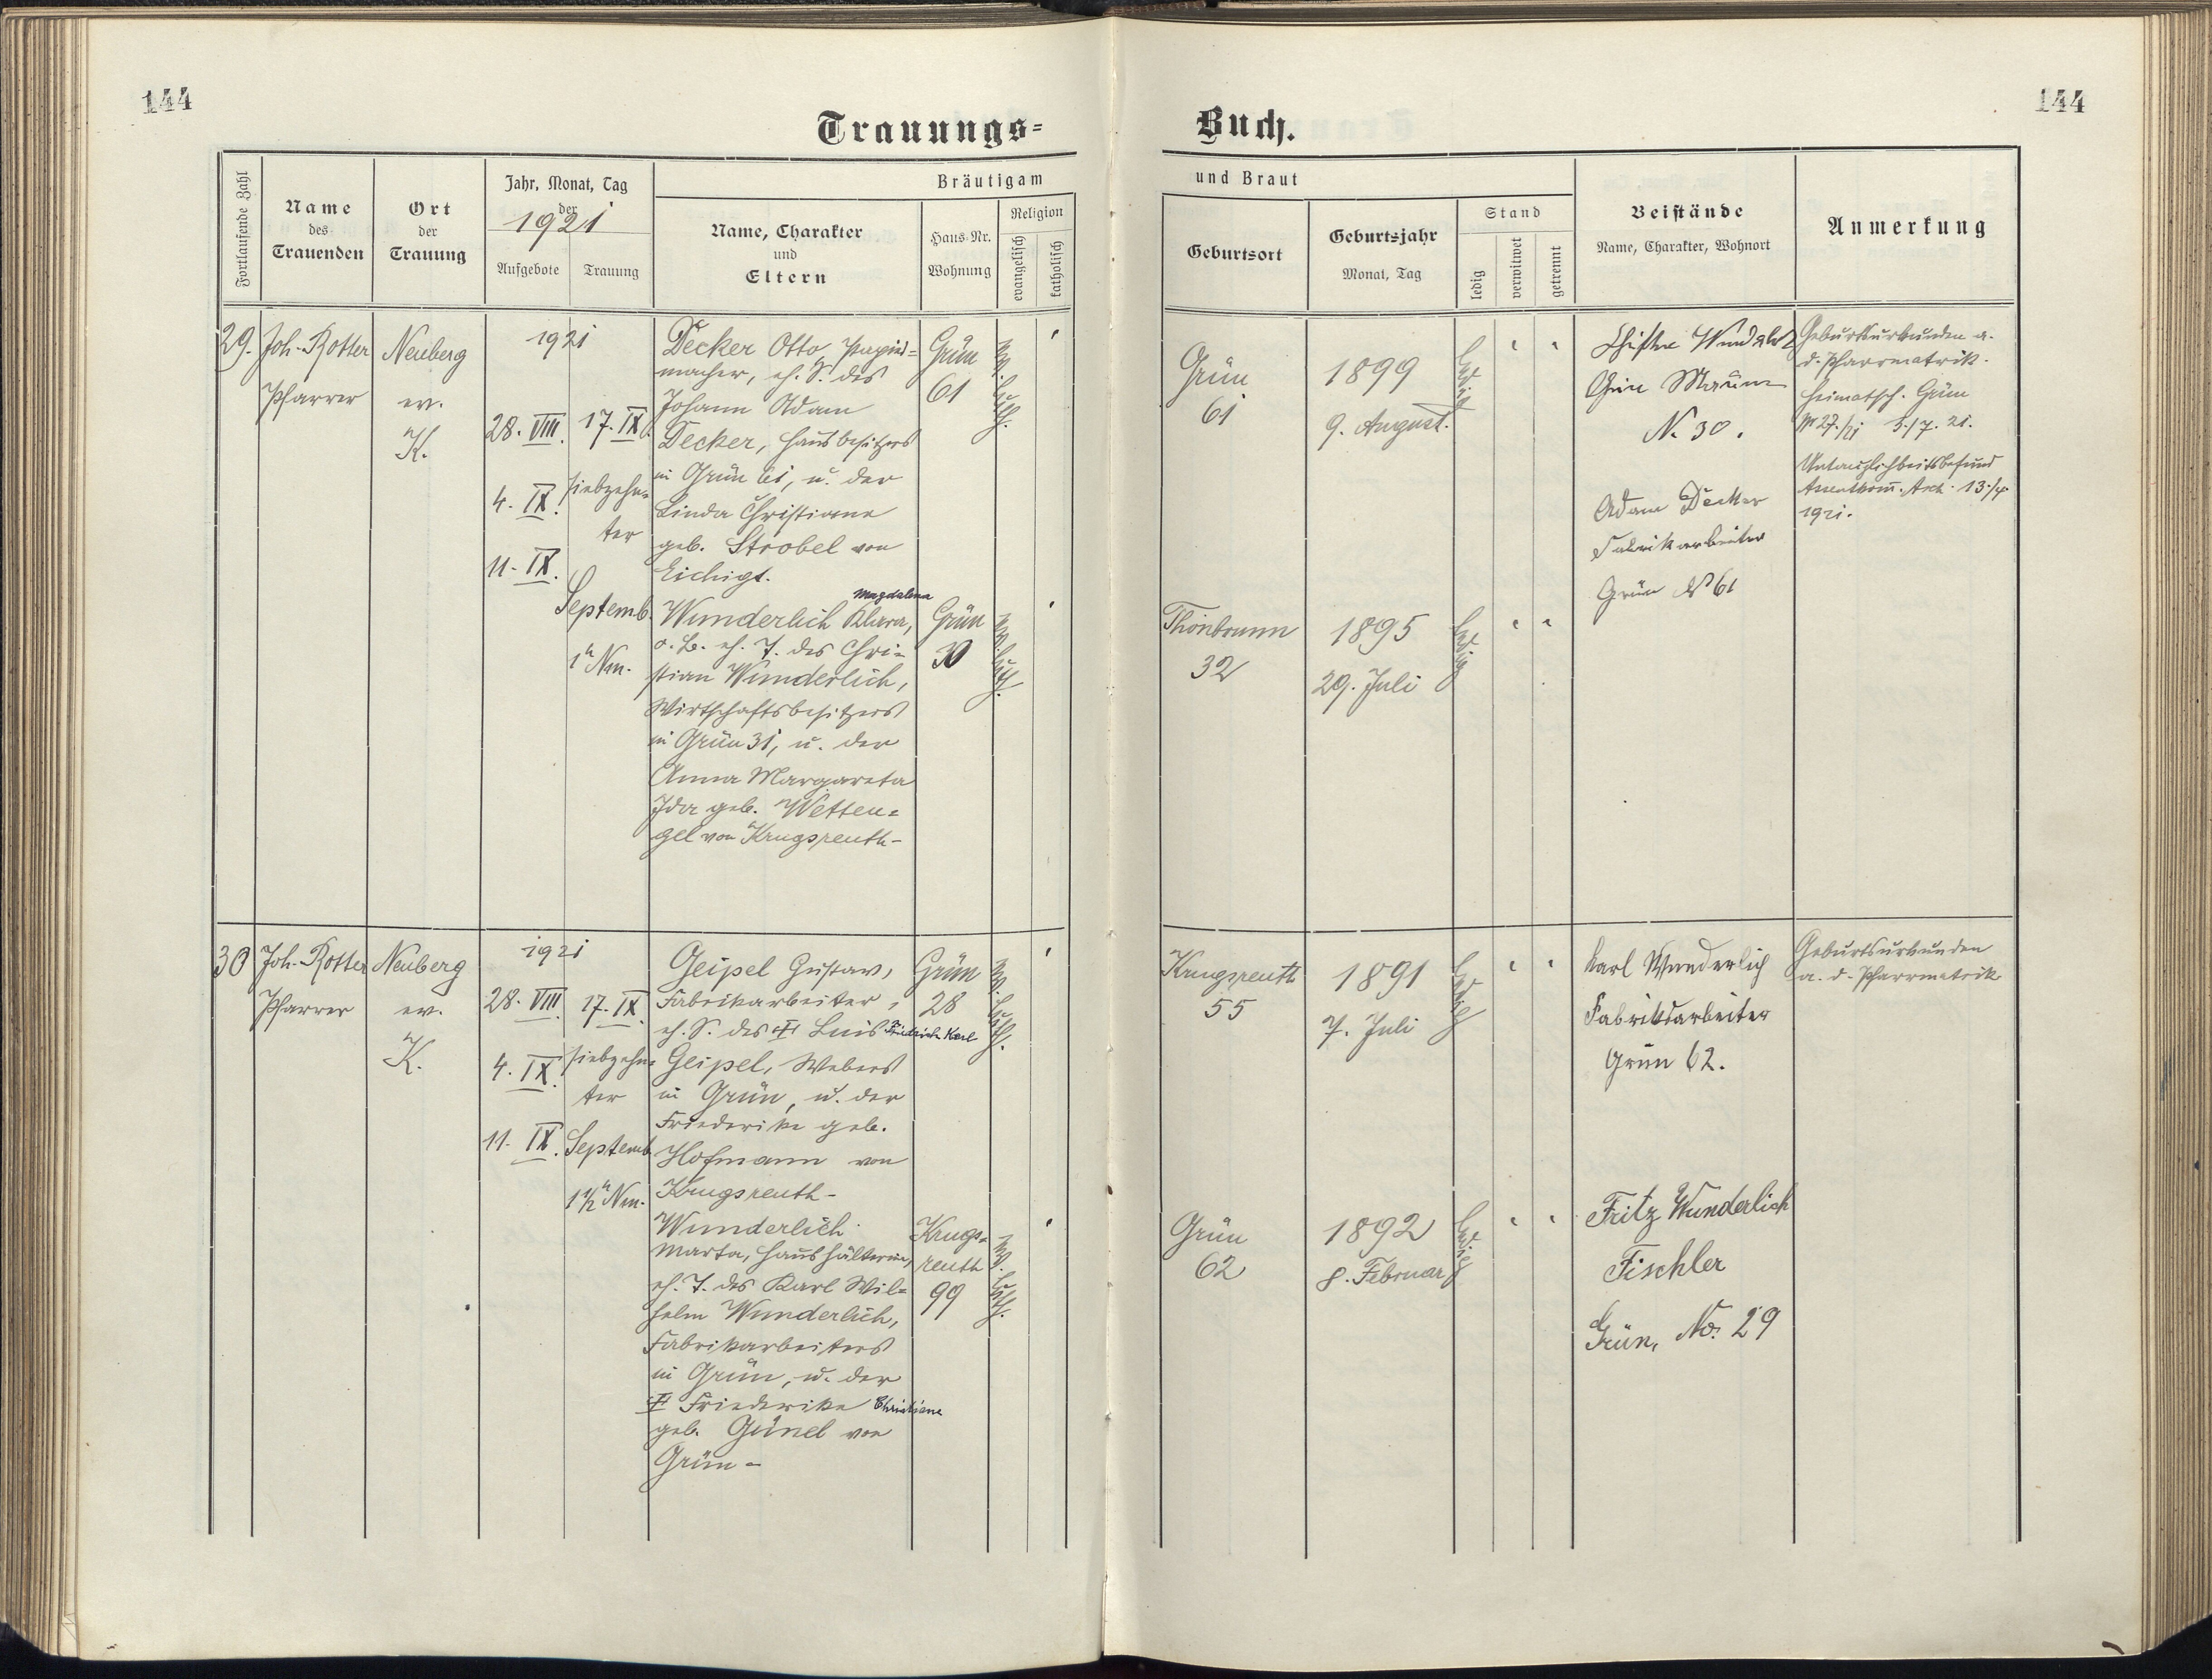 144
144
Trauungs=
Buch.
Fortlaufende Zahl
Name
des
Trauenden
Ort
der
Trauung
Jahr, Monat, Tag
der
1921
Aufgebote
Trauung
Bräutigam
Name, Charakter
und
Eltern
Haus-Nr.
Wohnung
Religion
evangelisch
katholisch
und Braut
Geburtsort
Geburtsjahr
Monat, Tag
Stand
ledig
verwitwet
getrennt
Beistände
Name, Charakter, Wohnort
Anmerkung
29.
Joh. Rotter
Pfarrer
Neuberg
ev.
K.
1921
28. VIII.
4. IX.
11. IX.
17. IX.
siebzehn=
ter
Septemb.
1 h Nm.
Decker Otto,
macher, eh. S. des
Johann Adam
Decker, Hausbesitzers
in Grün 61, u. der
Linda Christiane
geb. Strobel von
Eichigt.
Grün
61
ev. luth.
Grün
61
1899
9. August.
ledig
Magdalena
Wunderlich Klara,
o. B. eh. T. des Chri=
stian Wunderlich,
Wirtschaftsbesitzers
in Grün 31, u. der
Anna Margareta
Ida geb. Wetten=
gel von Krugsreuth-
Grün
30
ev. luth.
Thonbrunn
32
1895
29. Juli
ledig
N. 30.
Adam Decker
Fabrikarbeiter
Grün No 61
Geburtsurkunden a.
d. Pfarrmatrik.
Heimatsch. Grün
5./7. 21.
Untauglichkeitsbefund
1921.
30
Joh. Rotter
Pfarrer
Neuberg
ev.
K.
1921
28. VIII.
4. IX.
11. IX.
17. IX.
siebzehn=
ter
Septemb.
1 1/2 h Nm.
Geipel Gustav,
Fabrikarbeiter,
eh. S. des † Luis Friedrich Karl
Geipel, Webers
in Grün, u. der
Friederike geb.
Hofmann von
Krugsreuth-
Grün
28
ev. luth.
Krugsreuth
55
1891
7. Juli
ledig
Wunderlich
Marta, Haushälterin,
eh. T. des Karl Wil=
helm Wunderlich,
Fabrikarbeiters
in Grün, u. der
† Friederike Christiane
geb. Günel von
Grün-
Krugs=
reuth
99
ev. luth.
Grün
62
1892
8. Februar
ledig
Karl Wunderlich
Fabriksarbeiter
Grün 62.
Fritz Wunderlich
Tischler
Grün, No. 29
Geburtsurkunden
a. d. Pfarrmatrik.